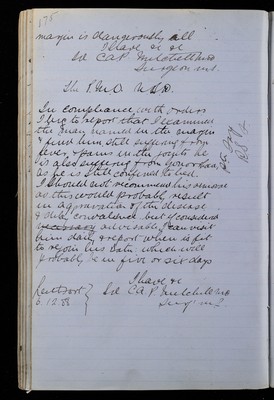 175
margin is dangerously all
I have &c &c
Sd C A P Mitchell MB
Surgeon
The P.M.O
In compliance with orders
I beg to report that I examined
the man named in the margin
& find him still suffering from
fever, & pains in the joints he
is also suffering from gonorrhoea
as he is still confined to bed.
I should not recommend his remove
as this would probably result
in aggravation of the disease
& delay convalescence but if considered
necessary advisable, I can visit
him daily & report when is fit
to rejoin his Batn. which will
probably be in five or six days
I have &c
Sd C A P Mitchell MB
6.12.88